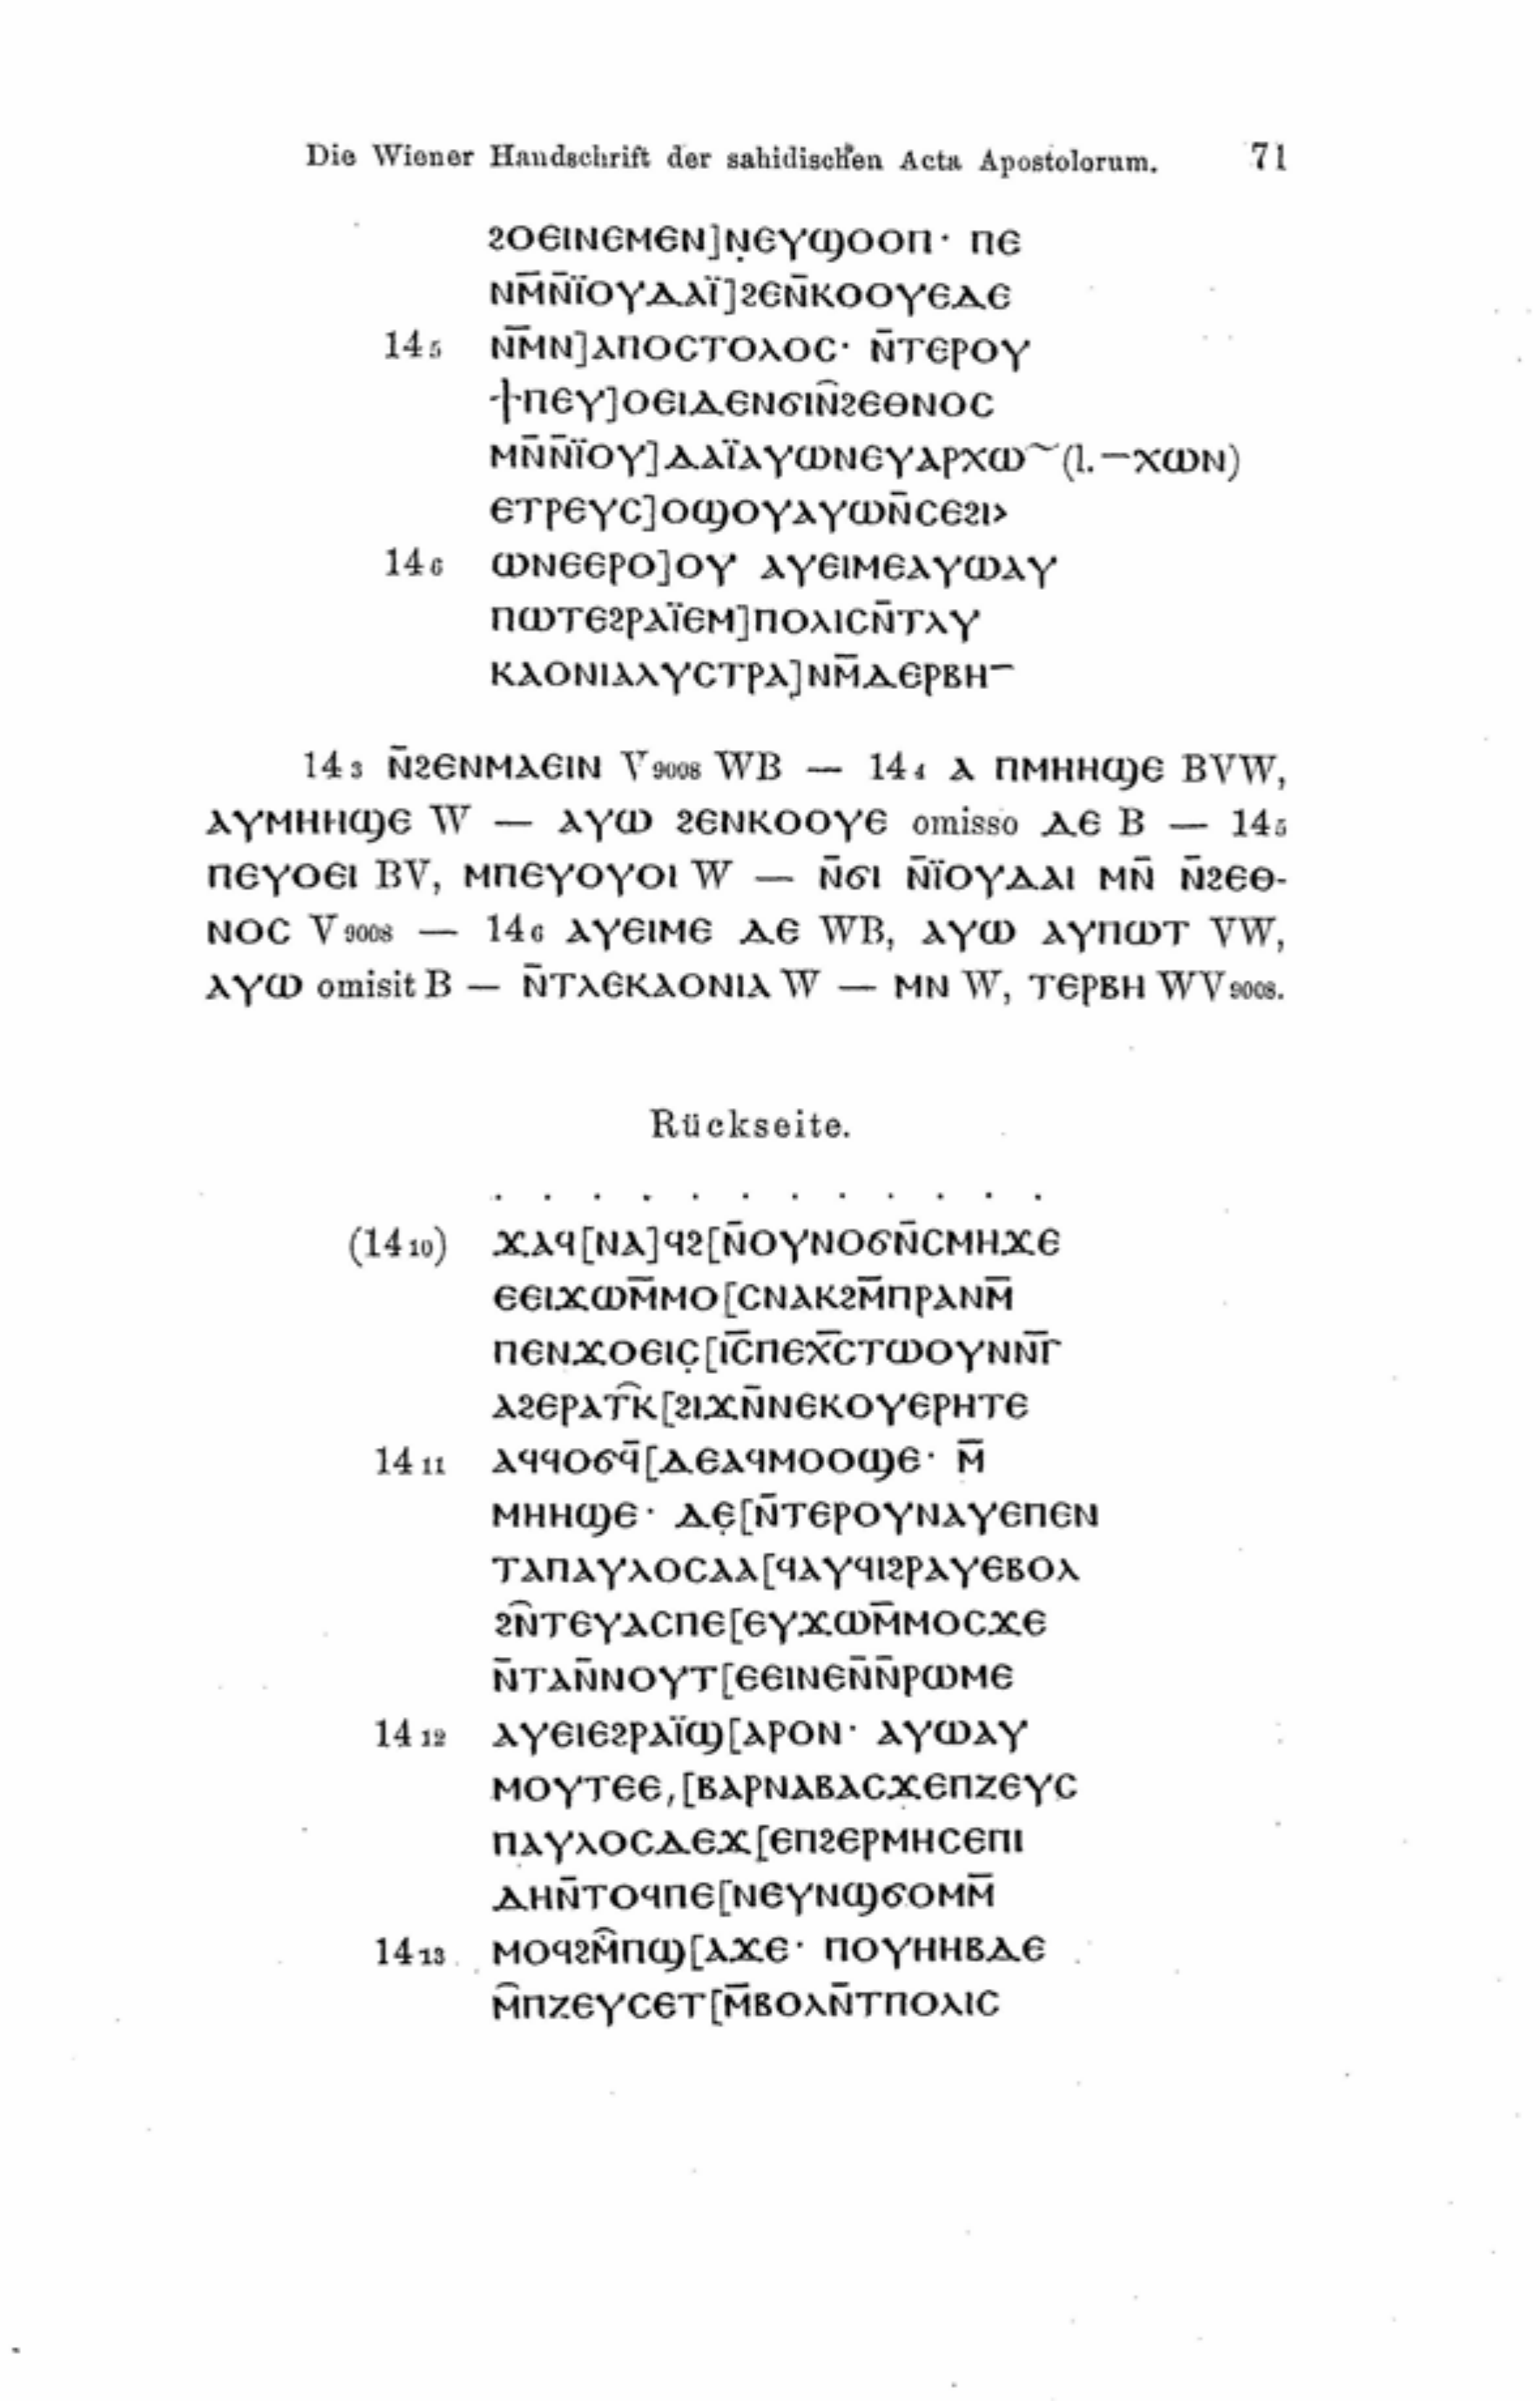 Die Wiener Handschrift der sahidischen Acta Apostolorum. 71
ϩⲟⲉⲓⲛⲉⲙⲉⲛ]ⲛ̣ⲉⲩϣⲟⲟⲡ· ⲡⲉ
ⲛⲙ̄ⲛ̄ⲓ̈ⲟⲩⲇⲁⲓ̈]ϩⲉⲛ̄ⲕⲟⲟⲩⲉⲇⲉ
14 5 ⲛⲙ̄ⲛ]ⲁⲡⲟⲥⲧⲟⲗⲟⲥ· ⲛ̄ⲧⲉⲣⲟⲩ
ϯⲡⲉⲩ]ⲟⲉⲓⲇⲉⲛϭⲓⲛ̑ϩⲉⲑⲛⲟⲥ
ⲙⲛ̄ⲛ̄ⲓ̈ⲟⲩ]ⲇⲁⲓ̈ⲁⲩⲱⲛⲉⲩⲁⲣⲭⲱ~(l.—ⲭⲱⲛ)
ⲉⲧⲣⲉⲩⲥ]ⲟϣⲟⲩⲁⲩⲱⲛ̄ⲥⲉϩⲓ>
14 6 ⲱⲛⲉⲉⲣⲟ]ⲟⲩ ⲁⲩⲉⲓⲙⲉⲁⲩⲱⲁⲩ
ⲡⲱⲧⲉϩⲣⲁⲓ̈ⲉⲙ]ⲡⲟⲗⲓⲥⲛ̄ⲧⲗⲩ
ⲕⲁⲟⲛⲓⲁⲗⲩⲥⲧⲣⲁ]ⲛⲙ̄ⲇⲉⲣⲃⲏ—
14 3 ⲛ̄ϩⲉⲛⲙⲁⲉⲓⲛ V 9008 WB — 14 4 ⲁ ⲡⲙⲏⲏϣⲉ BVW,
ⲁⲩⲙⲏⲏϣⲉ W — ⲁⲩⲱ ϩⲉⲛⲕⲟⲟⲩⲉ omisso ⲇⲉ B — 14 5
ⲡⲉⲩⲟⲉⲓ BV, ⲙⲡⲉⲩⲟⲩⲟⲓ W — ⲛ̄ϭⲓ ⲛ̄ⲓ̈ⲟⲩⲇⲁⲓ ⲙⲛ̄ ⲛ̄ϩⲉⲑ-
ⲛⲟⲥ V 9008 — 14 6 ⲁⲩⲉⲓⲙⲉ ⲇⲉ WB, ⲁⲩⲱ ⲁⲩⲡⲱⲧ VW,
ⲁⲩⲱ omisit B — ⲛ̄ⲧⲗⲉⲕⲁⲟⲛⲓⲁ W — ⲙⲛ W, ⲧⲉⲣⲃⲏ WV 9008.
Rückseite.
. . . . . . . . . . . .
(14 10) ϫⲁϥ[ⲛⲁ]ϥϩ[ⲛ̄ⲟⲩⲛⲟϭⲛ̄ⲥⲙⲏϫⲉ
ⲉⲉⲓϫⲱⲙ̄ⲙⲟ[ⲥⲛⲁⲕϩⲙ̄ⲡⲣⲁⲛⲙ̄
ⲡⲉⲛϫⲟⲉⲓⲥ̣[ⲓ̄ⲥ̄ⲡⲉⲭ̄ⲥ̄ⲧⲱⲟⲩⲛⲛⲅ̄
ⲁϩⲉⲣⲁⲧ̑ⲕ[ϩⲓϫⲛ̄ⲛⲉⲕⲟⲩⲉⲣⲏⲧⲉ
14 11 ⲁϥϥⲟϭϥ̄[ⲇⲉⲁϥⲙⲟⲟϣⲉ· ⲙ̄
ⲙⲏⲏϣⲉ· ⲇⲉ̣[ⲛ̄ⲧⲉⲣⲟⲩⲛⲁⲩⲉⲡⲉⲛ
ⲧⲁⲡⲁⲩⲗⲟⲥⲁⲁ[ϥⲁⲩϥⲓϩⲣⲁⲩⲉⲃⲟⲗ
ϩⲛ̑ⲧⲉⲩⲁⲥⲡⲉ[ⲉⲩϫⲱⲙ̄ⲙⲟⲥϫⲉ
ⲛ̄ⲧⲁⲛ̄ⲛⲟⲩⲧ[ⲉⲉⲓⲛⲉⲛ̄ⲛ̄ⲣⲱⲙⲉ
14 12 ⲁⲩⲉⲓⲉϩⲣⲁⲓ̈ϣ[ⲁⲣⲟⲛ· ⲁⲩⲱⲁⲩ
ⲙⲟⲩⲧⲉⲉ,[ⲃⲁⲣⲛⲁⲃⲁⲥϫⲉⲡⲍⲉⲩⲥ
ⲡⲁⲩⲗⲟⲥⲇⲉϫ[ⲉⲡϩⲉⲣⲙⲏⲥⲉⲡⲓ
ⲇⲏⲛ̄ⲧⲟϥⲡⲉ[ⲛⲉⲩⲛϣϭⲟⲙⲙ̄
14 13 ⲙⲟϥϩⲙ̑ⲡϣ[ⲁϫⲉ· ⲡⲟⲩⲏⲏⲃⲇⲉ
ⲙ̑ⲡⲍⲉⲩⲥⲉⲧ[ⲙ̄ⲃⲟⲗⲛ̄ⲧⲡⲟⲗⲓⲥ